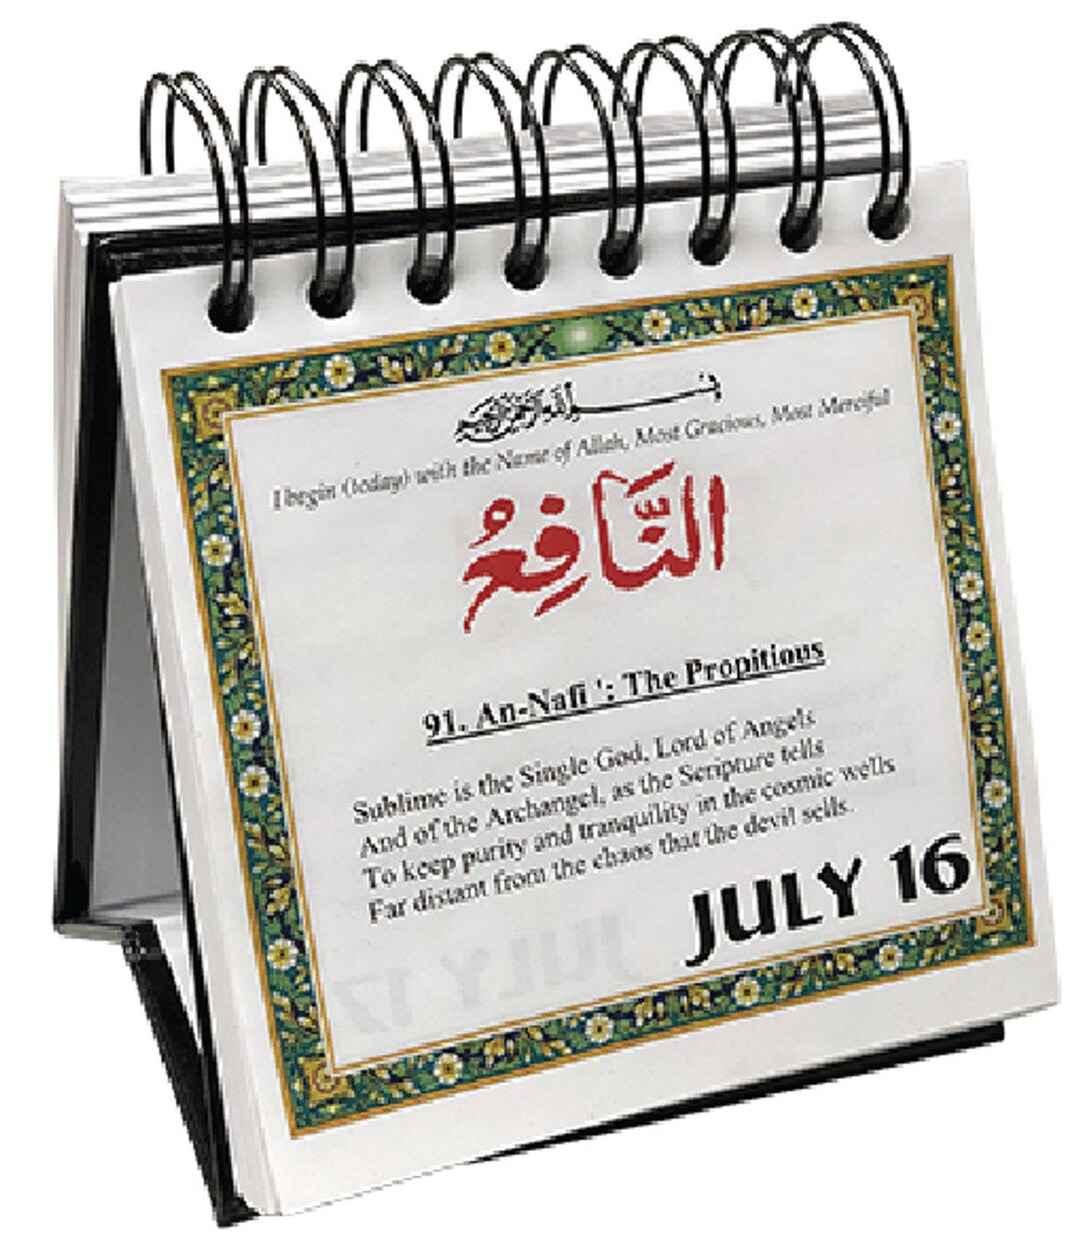 بسم الله الرحمن الرحيم
I begin (today) with the Name of Allah, Most Gracious, Most Merciful
النَّافِعُ
91. An-Nafi ': The Propitious
Sublime is the Single God, Lord of Angels
And of the Archangel, as the Scripture tells
To keep purity and tranquility in the cosmic wells
Far distant from the chaos that the devil sells.
JULY 16
JULY 17